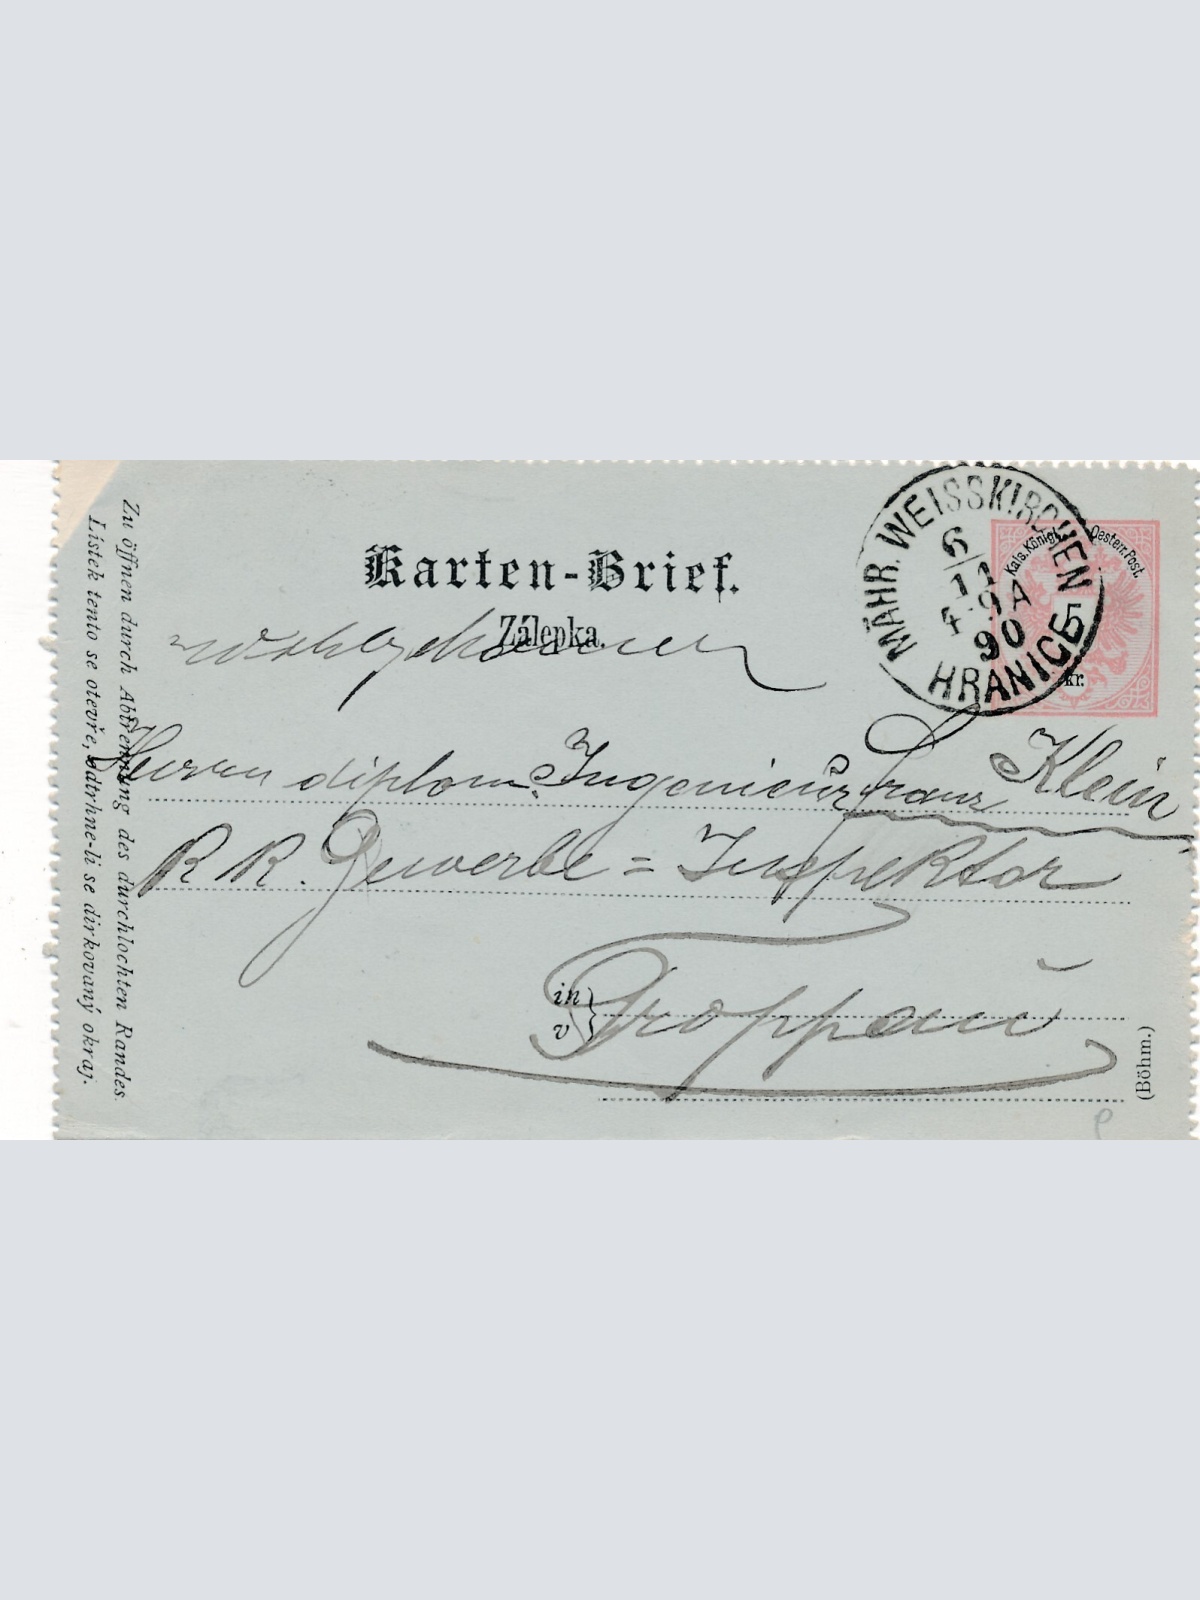 Karten-Brief.
Zálepka.
MÄHR. WEISSKIRCHEN
6/11
4 9A
90
HRANICE
Kais. Königl. Oesterr. Post.
5
kr.
Herrn diplom. Ingenieur Franz Klein
K K. Gewerbe = Inspektor
in
v
Troppau
(Böhm.)
Zu öffnen durch Abtrennung des durchlochten Randes.
Lístek tento se otevře, odtrhne-li se dirkovaný okraj.